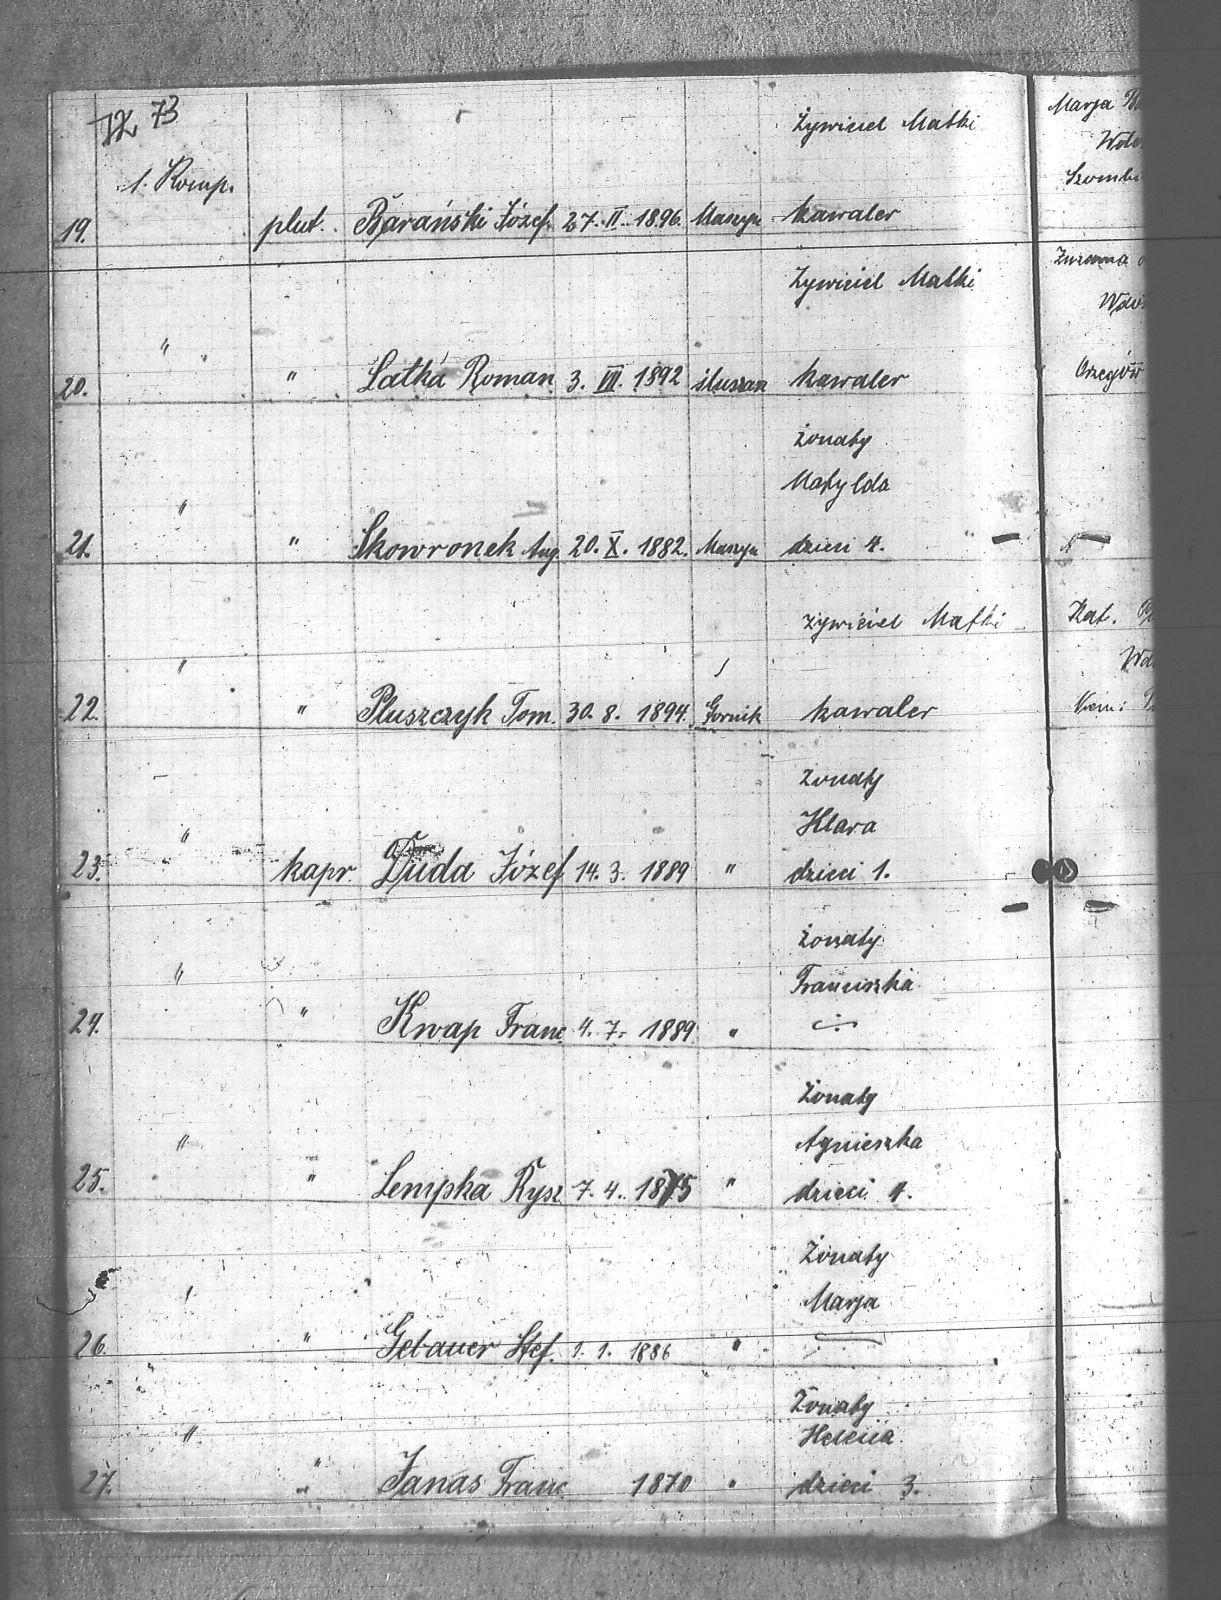 73
Żywiciel Matki
1. Komp.
19. plut. Barański Józef 27. II. 1896. Maszyn kawaler
Marja
Żywiciel Matki
Zuzanna
" "
20. " Latka Roman 3. VII. 1892 ślusarz kawaler
Orzegów
żonaty
Matylda
"
21. " Skowronek Aug. 20. X. 1882. Maszyn dzieci 4.
żywiciel Matki
Kat.
"
22. " Pluszczyk Tom. 30. 8. 1894. Górnik kawaler
żonaty
Klara
"
23. kapr. Duda Józef 14. 3. 1889 " dzieci 1.
żonaty
Franciszka
"
24. " Kwap Franc 4. 7. 1889 "
Żonaty
Agnieszka
"
25. " Lempka Rysz 7. 4. 1875 " dzieci 4.
Żonaty
Marja
26. " Gebauer Stef. 1. 1. 1886 "
Żonaty
Helena
"
27. " Janas Franc 1870 " dzieci 3.